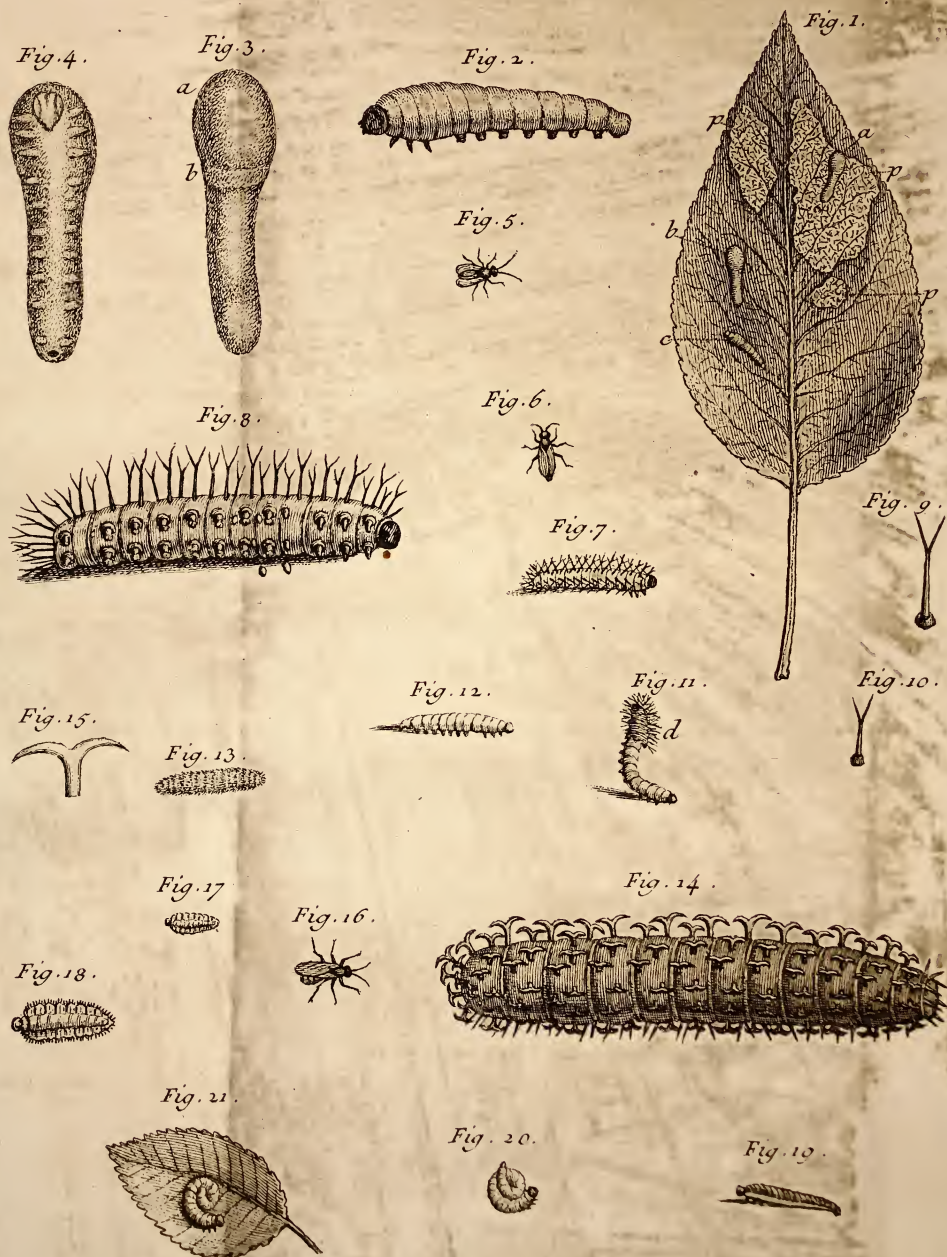 Fig. 4.
Fig. 3.
a
b
Fig. 2.
Fig. 1.
p
a
p
b
p
c
Fig. 5.
Fig. 6.
Fig. 8.
Fig. 7.
Fig. 9.
Fig. 10.
Fig. 11.
d
Fig. 12.
Fig. 15.
Fig. 13.
Fig. 14.
Fig. 17
Fig. 16.
Fig. 18.
Fig. 21.
Fig. 20.
Fig. 19.